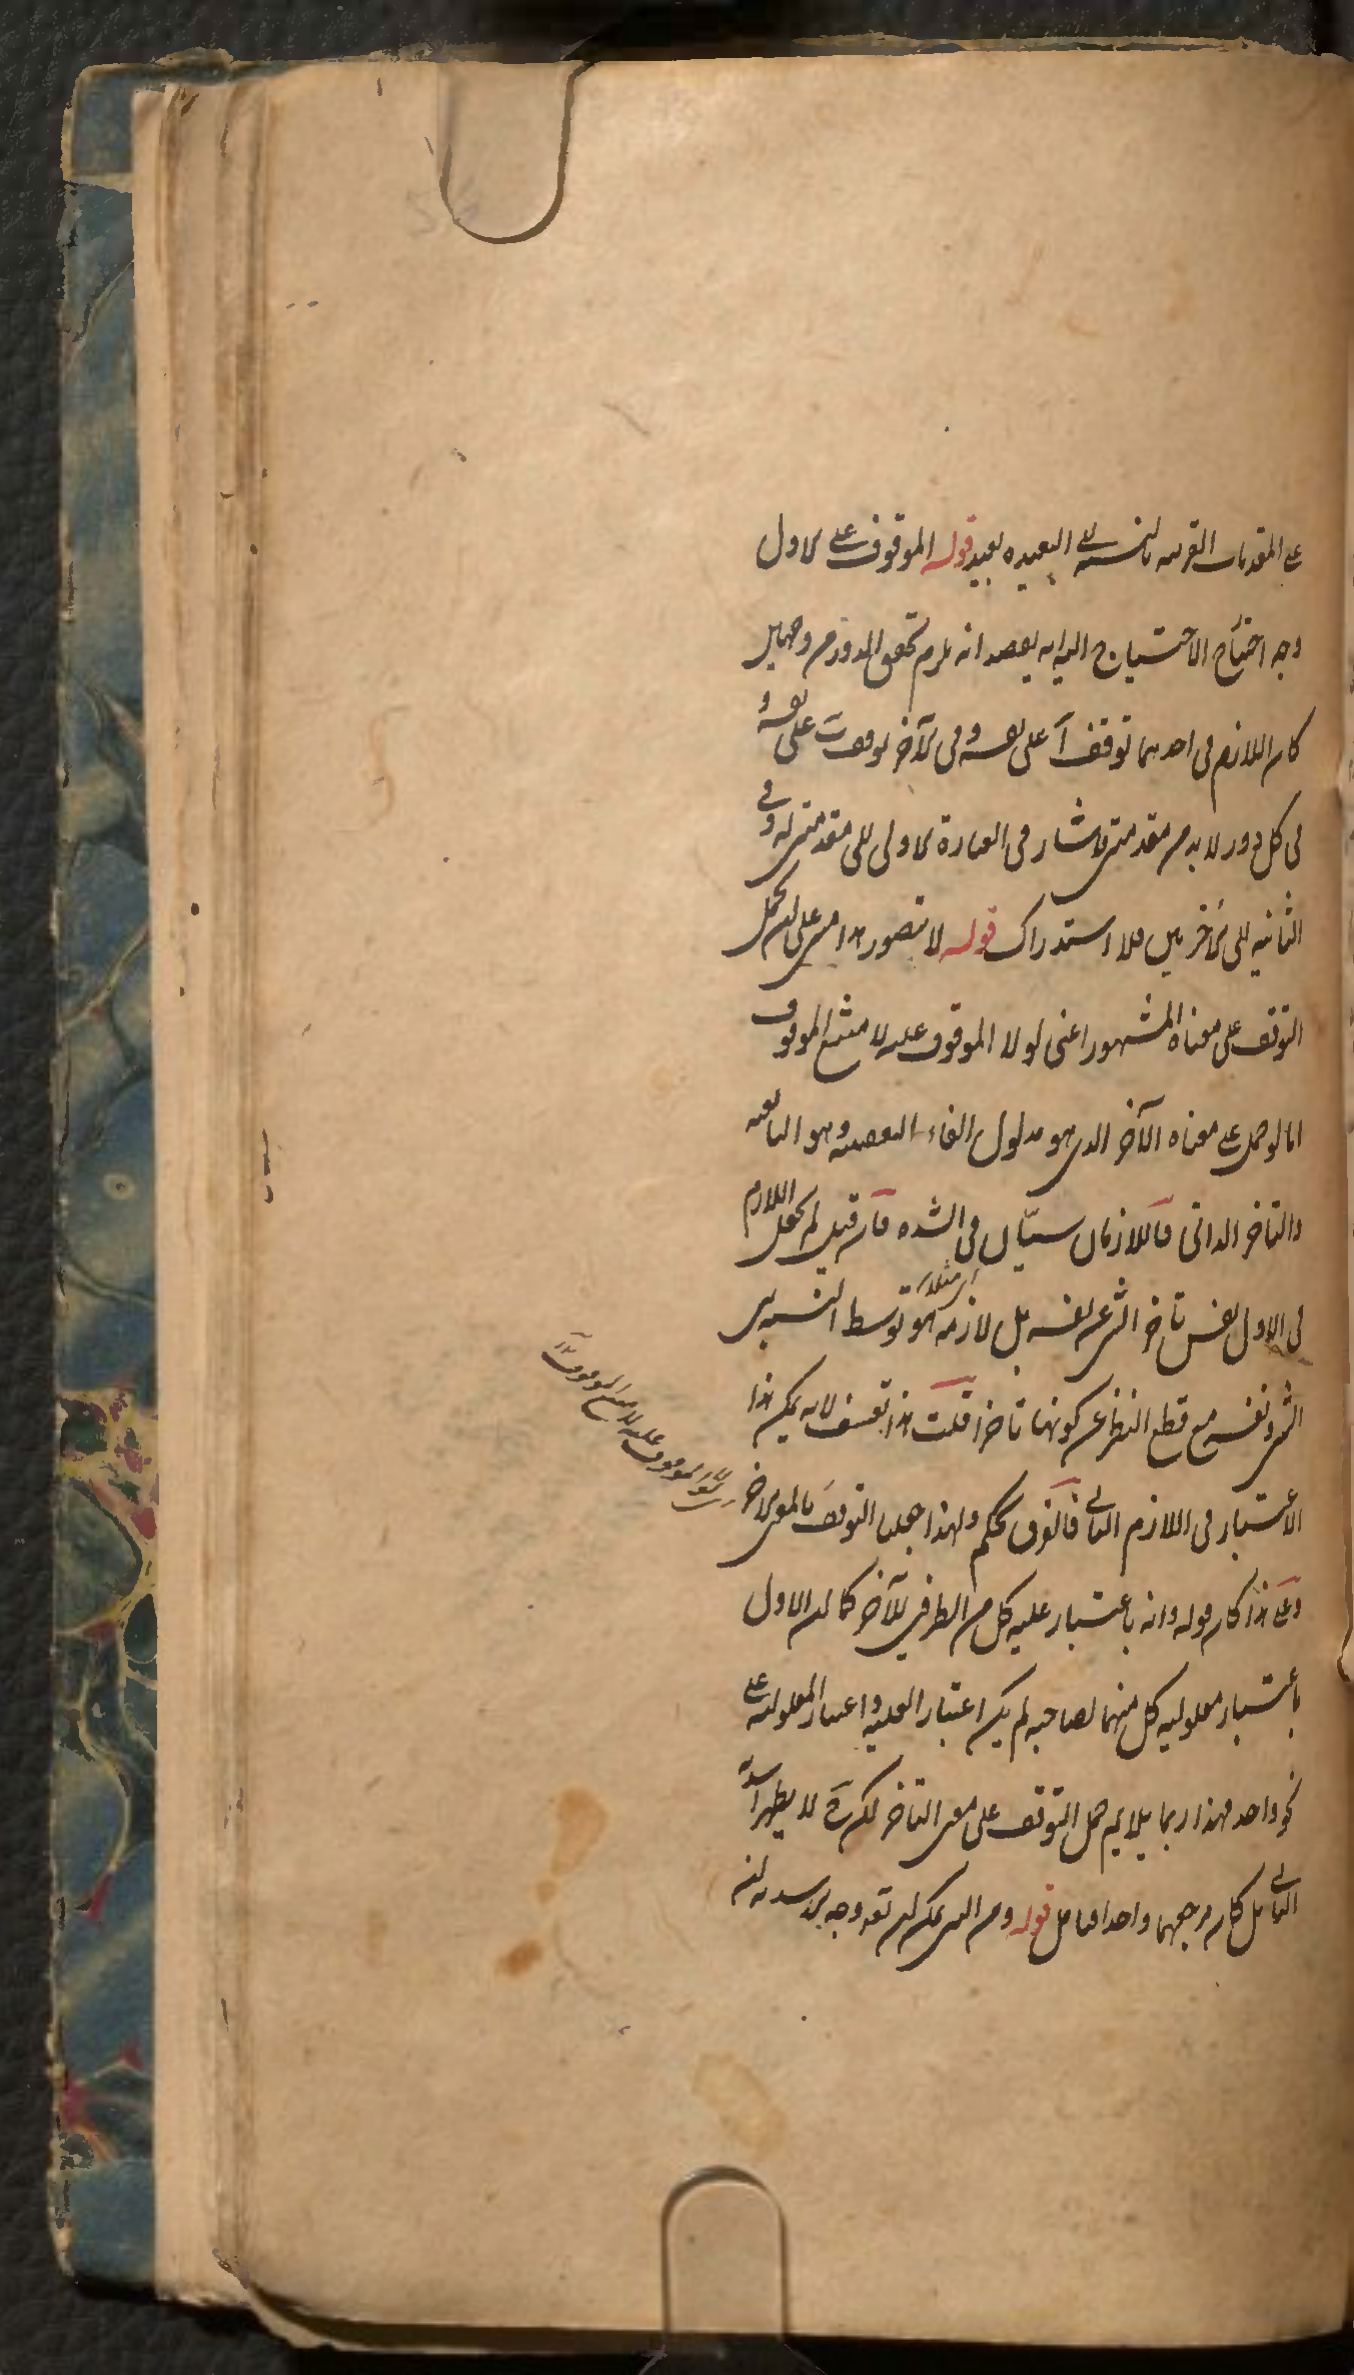 على المقدمات القريبة بالنسبة الى البعيده بعيد قوله الموقوف على الاول
وجه احتياج الاحتياج اليه انه يقصد انه يلزم تحقق الدور من وجهين
كان اللازم فى احدهما توقف آ على نفسه وفى الآخر توقف ب على نفسه و
فى كل دور لا بد من مقدمتين فاشار فى العبارة الاولى الى مقدمتين له وفى
الثانيه الى الآخريين فلا استدراك قوله لا يتصور هذا مبنى على ان يحمل
التوقف على معناه المشهور اعنى لولا الموقوف عليه لامتنع الموقوف
اما لو حمل على معناه الآخر الذى هو مدلول الفاء التعقيبيه وهو التابعيه
والتاخر الذاتى فاللازمان سيّان فى الشده فان قيل لم يجعل اللازم
فى الاول نفس تاخر الشى عن نفسه بل لازمه اى مثلا هو توسط النسبه بين
الشى ونفسه مع قطع النظر عن كونهما تاخرا قلت هذا تعسف لانه يمكن هذا
الاعتبار فى اللازم الثانى فالفرق تحكم ولهذا جعلنا التوقف بالمعنى الآخر
لولا الموقوف عليه لامتنع الموقوف ١٢
وعلى هذا كان قوله وانه باعتبار عليه كل من الطرفين للآخر كما ان الاول
باعتبار معلوليه كل منهما لصاحبه لم يكن اعتبار العليه واعتبار المعلوليه على
نحو واحد فهذا ربما يلايم حمل التوقف على معنى التاخر لكن ح لا يظهر اشديّة
الثانى بل كان مرجعهما واحدا فتامل قوله ومن البين يمكن ان